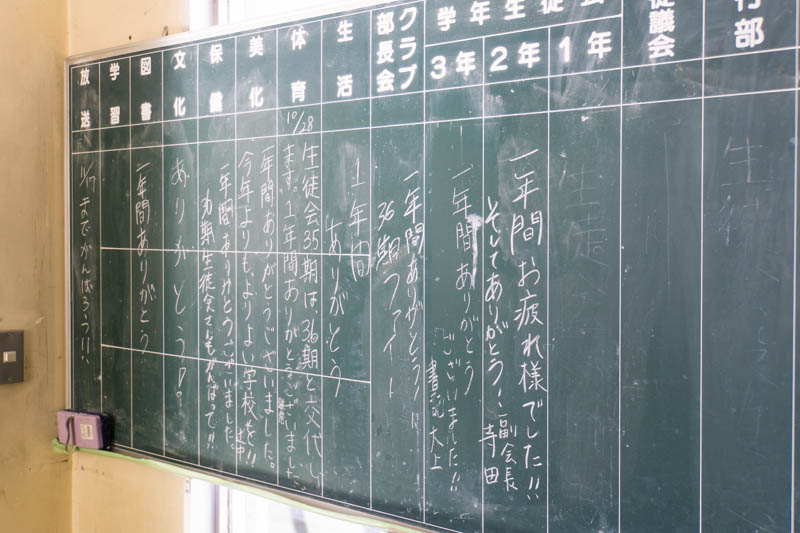 行部
徒議会
学年生徒会
1年
2年
3年
クラブ部長会
生活
体育
美化
保健
文化
図書
学習
放送
一年間お疲れ様でした!!
そしてありがとう!
副会長
寺田
一年間ありがとう
ございました!!
書記 大上
一年間ありがとう!
36期ファイト
1年間
ありがとう
10/28
生徒会35期は、36期と交代し
ます。1年間ありがとうございました
一年間ありがとうございました。
今年よりもよりよい学校を!!
一年間ありがとうございました。
36期生徒会さんもがんばって!!
ありがとう!
一年間ありがとう
11/17までがんばろう!!